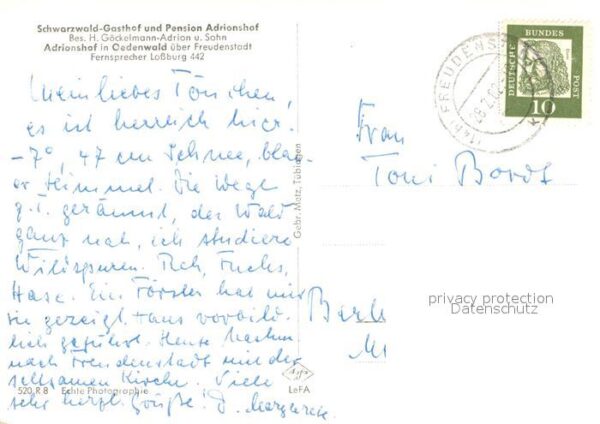 Schwarzwald-Gasthof und Pension Adrionshof
Bes. H. Göckelmann-Adrion u. Sohn
Adrionshof in Oedenwald über Freudenstadt
Fernsprecher Loßburg 442
Mein liebes Tönchen,
es ist herrlich hier.
-7°, 47 cm Schnee, blau-
er Himmel. Die Wege
z.T. geräumt, der Wald
ganz nah, ich studiere
Wildspuren. Reh, Fuchs,
Hase. Ein Förster hat mir
sie gezeigt + uns vorbild-
lich geführt. Heute Nachm.
nach Freudenstadt mit der
seltsamen Kirche. Viele
sehr herzl. Grüße! D. Margarete
520 R 8 Echte Photographie
Gebr. Metz, Tübingen
Agfa
LeFA
DEUTSCHE BUNDESPOST
10
FREUDENSTADT
Frau
Toni Bordt
privacy protection
Datenschutz